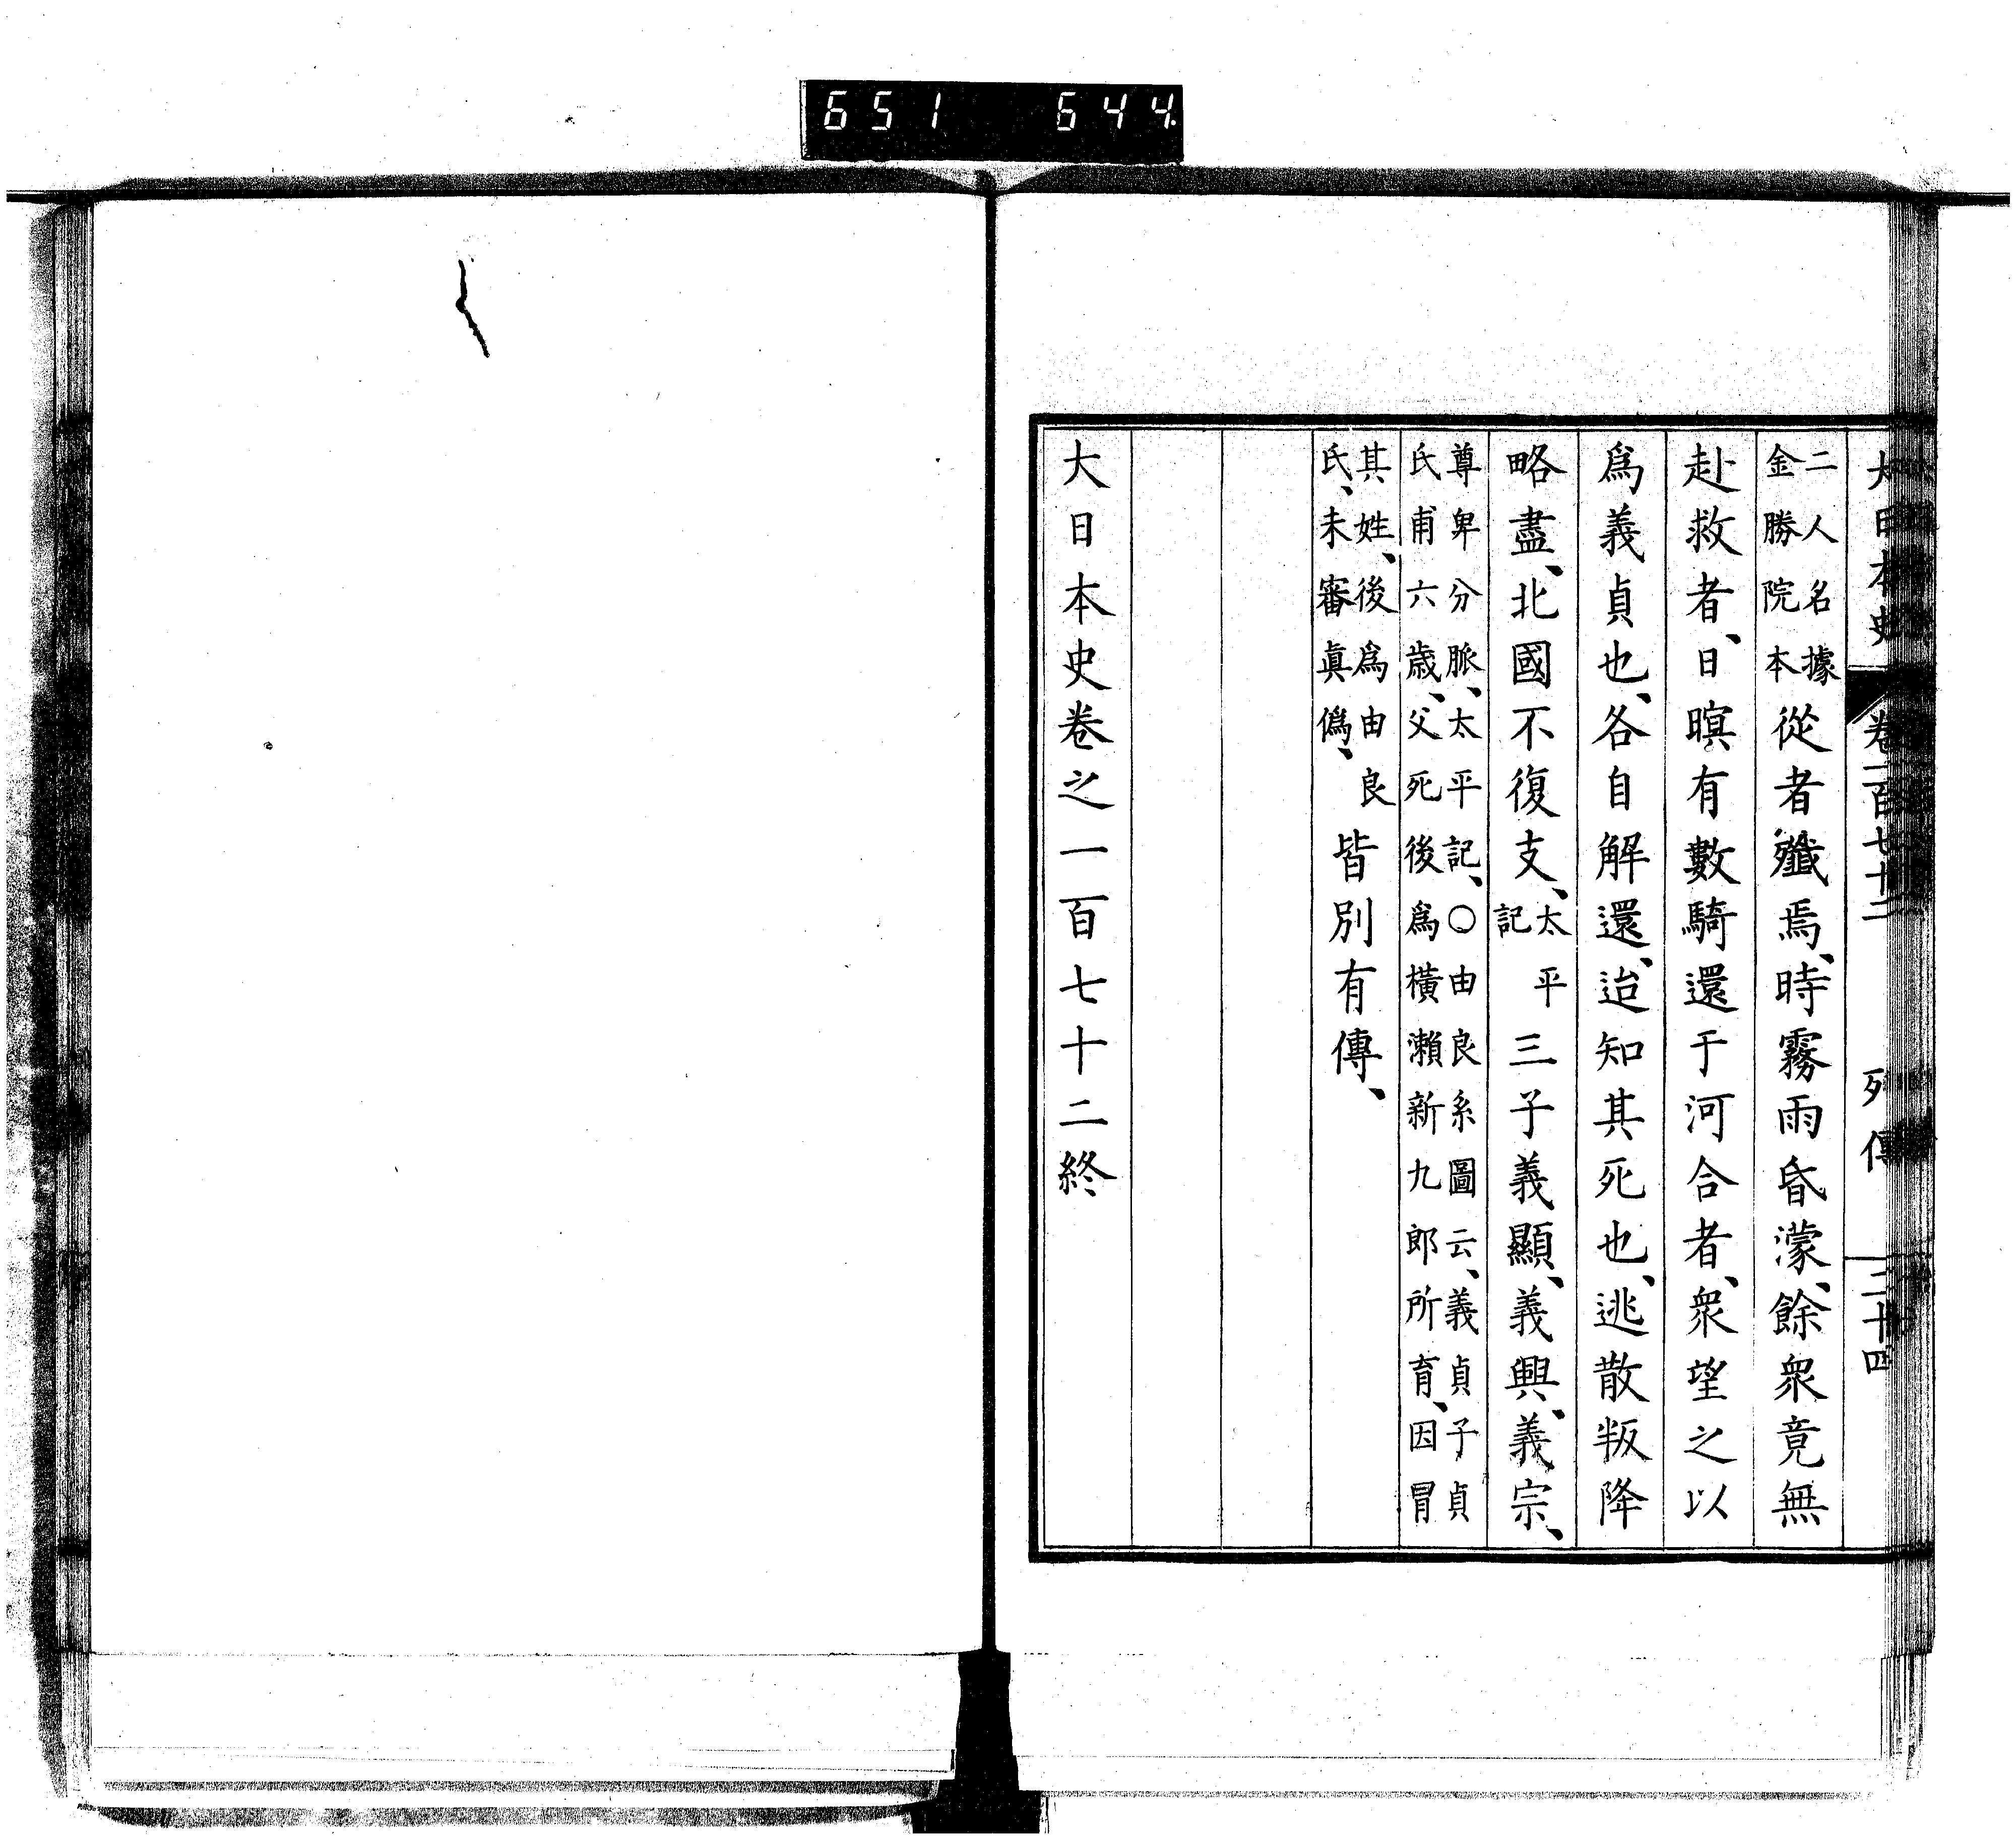 651 644
大日本史 卷一百七十二 列傳 三十四
二人名據
金勝院本從者殲焉、時霧雨昏濛、餘衆竟無
赴救者、日暝有數騎還于河合者、衆望之以
爲義貞也、各自解還、迨知其死也、逃散叛降
略盡、北國不復支、太平記三子義顯、義興、義宗、
尊卑分脈、太平記、○由良系圖云、義貞子貞
氏甫六歳、父死後爲橫瀬新九郎所育、因冒
其姓、後爲由良
氏、未審眞僞、皆別有傳、
大日本史卷之一百七十二終